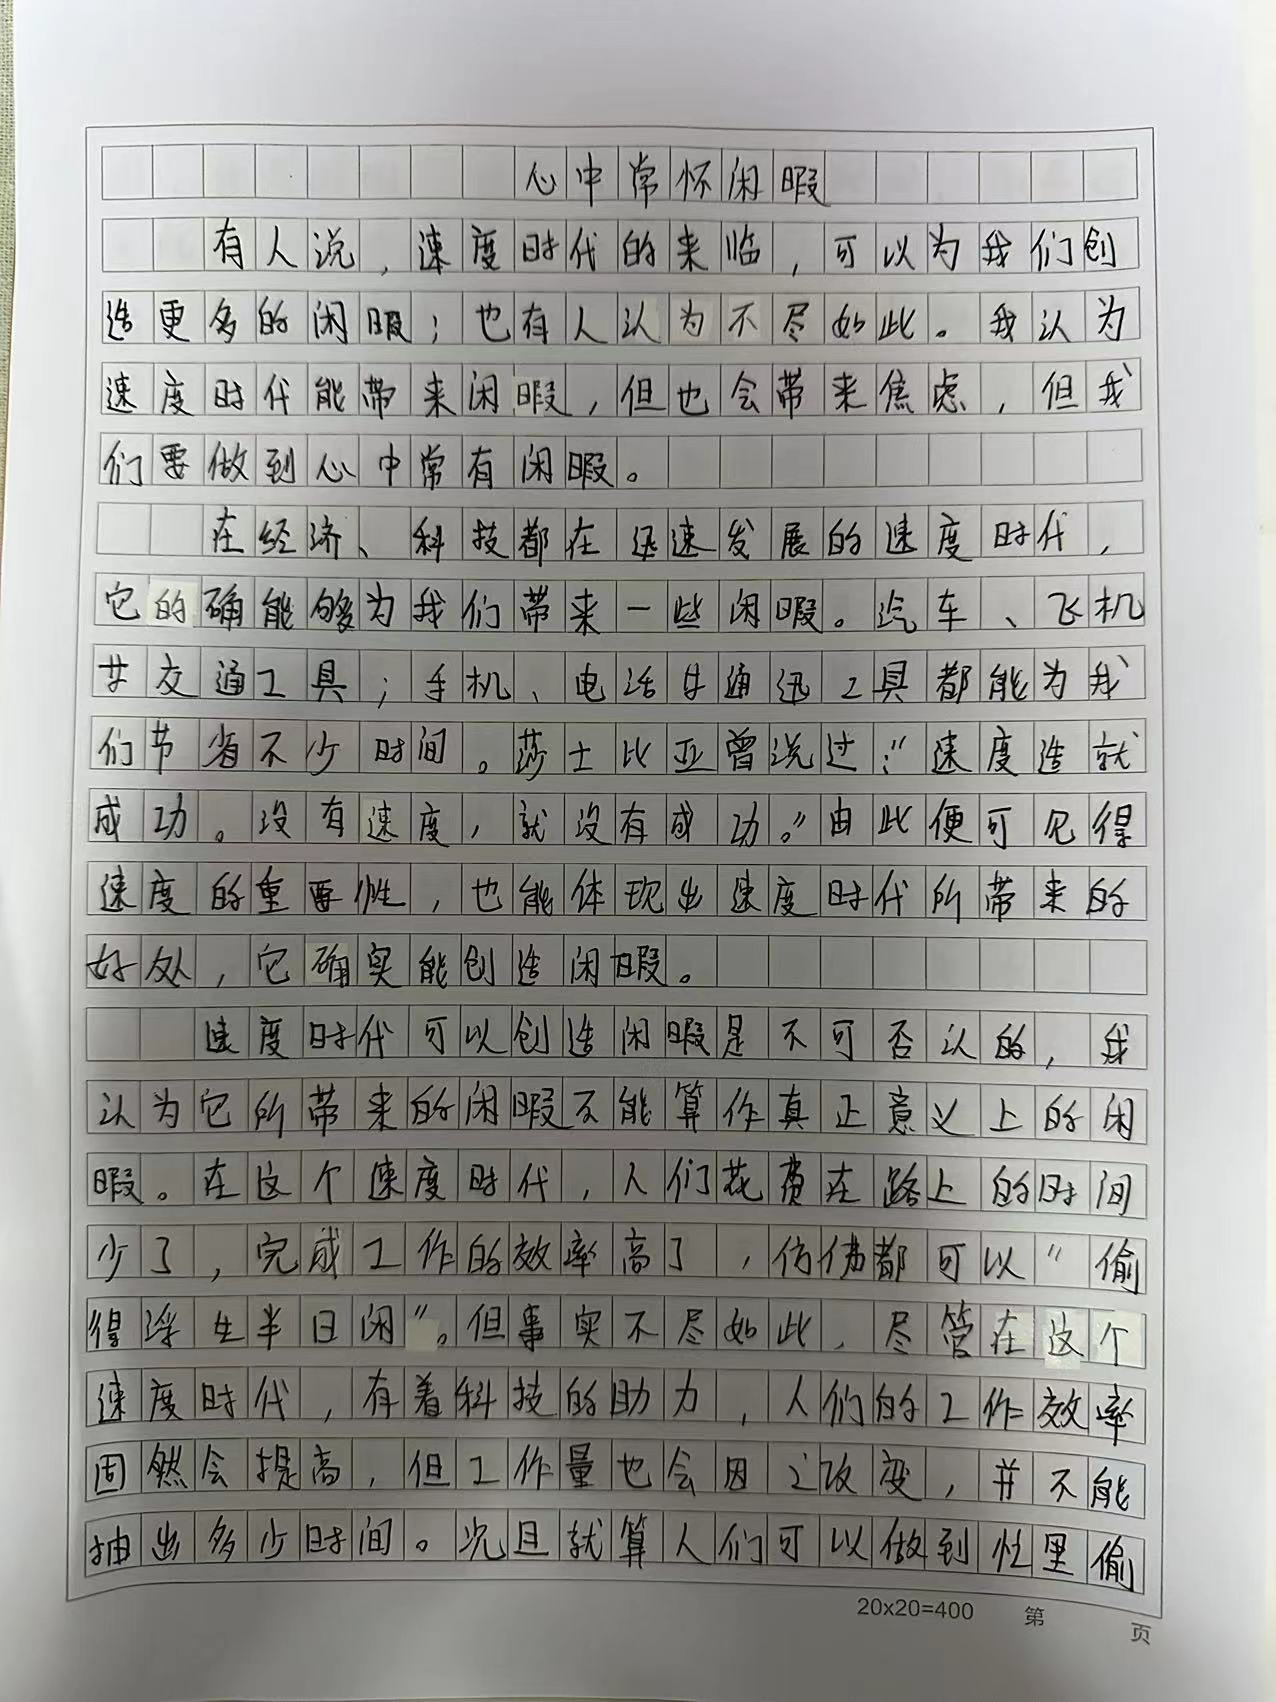 心中常怀闲暇
有人说，速度时代的来临，可以为我们创
造更多的闲暇；也有人认为不尽如此。我认为
速度时代能带来闲暇，但也会带来焦虑，但我
们要做到心中常有闲暇。
在经济、科技都在迅速发展的速度时代，
它的确能够为我们带来一些闲暇。汽车、飞机
等交通工具；手机、电话等通迅工具都能为我
们节省不少时间。莎士比亚曾说过："速度造就
成功。没有速度，就没有成功。"由此便可见得
速度的重要性，也能体现出速度时代所带来的
好处，它确实能创造闲暇。
速度时代可以创造闲暇是不可否认的，我
认为它所带来的闲暇不能算作真正意义上的闲
暇。在这个速度时代，人们花费在路上的时间
少了，完成工作的效率高了，仿佛都可以"偷
得浮生半日闲"。但事实不尽如此，尽管在这个
速度时代，有着科技的助力，人们的工作效率
固然会提高，但工作量也会因之改变，并不能
抽出多少时间。况且就算人们可以做到忙里偷
20x20=400 第 页